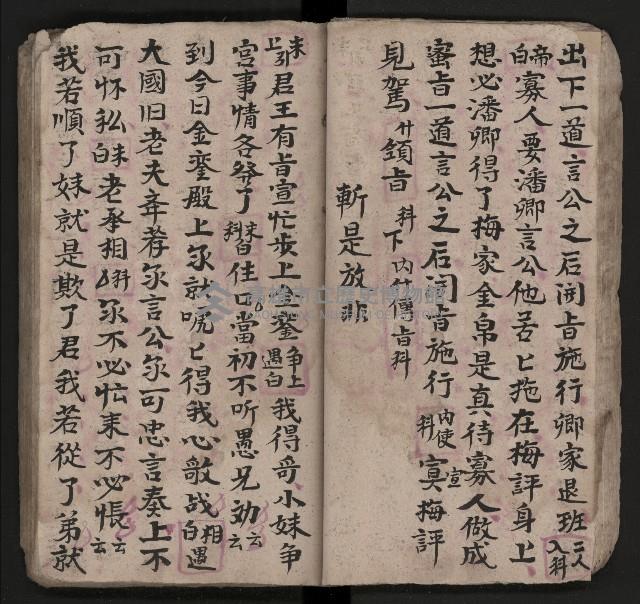 出下一道言公之后闻旨施行卿家退班二人入科
帝白寡人要潘卿言公他苦匕拖在梅評身上
想必潘卿得了梅家金帛是真待寡人做成
蜜旨一道言公之后闻旨施行内使科宣寞梅評
見駕廾領旨科下内什傳旨科
斬是放非
末上引君王有旨宣忙步上金銮争上遇白我得哥小妹争
宫事情各祭了末白科住口當初不听愚兄劝云云
到今日金銮殿上尔就唬匕得我心敨战相遇白
大國旧老夫年孝尔言公尔可忠言奏上不
可怀私白末老承相科尔不必忙末不必悵云云
我若順了妹就是欺了君我若從了弟就
高雄市立歷史博物館
KAOHSIUNG MUSEUM OF HISTORY